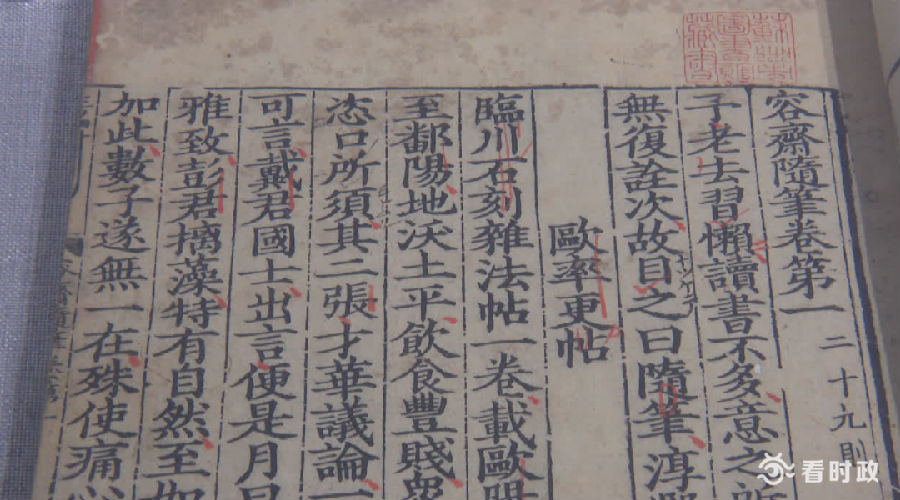 容齋隨筆卷第一 二十九則
予老去習懶讀書不多意之
無復詮次故目之曰隨筆淳
歐率更帖
臨川石刻雜法帖一卷載歐陽
至鄱陽地沃土平飲食豐賤衆
恣口所須其二張才華議論一
可言戴君國士出言便是月旦
雅致彭君摛藻特有自然至如
加此數子遂無一在殊使痛心
看时政